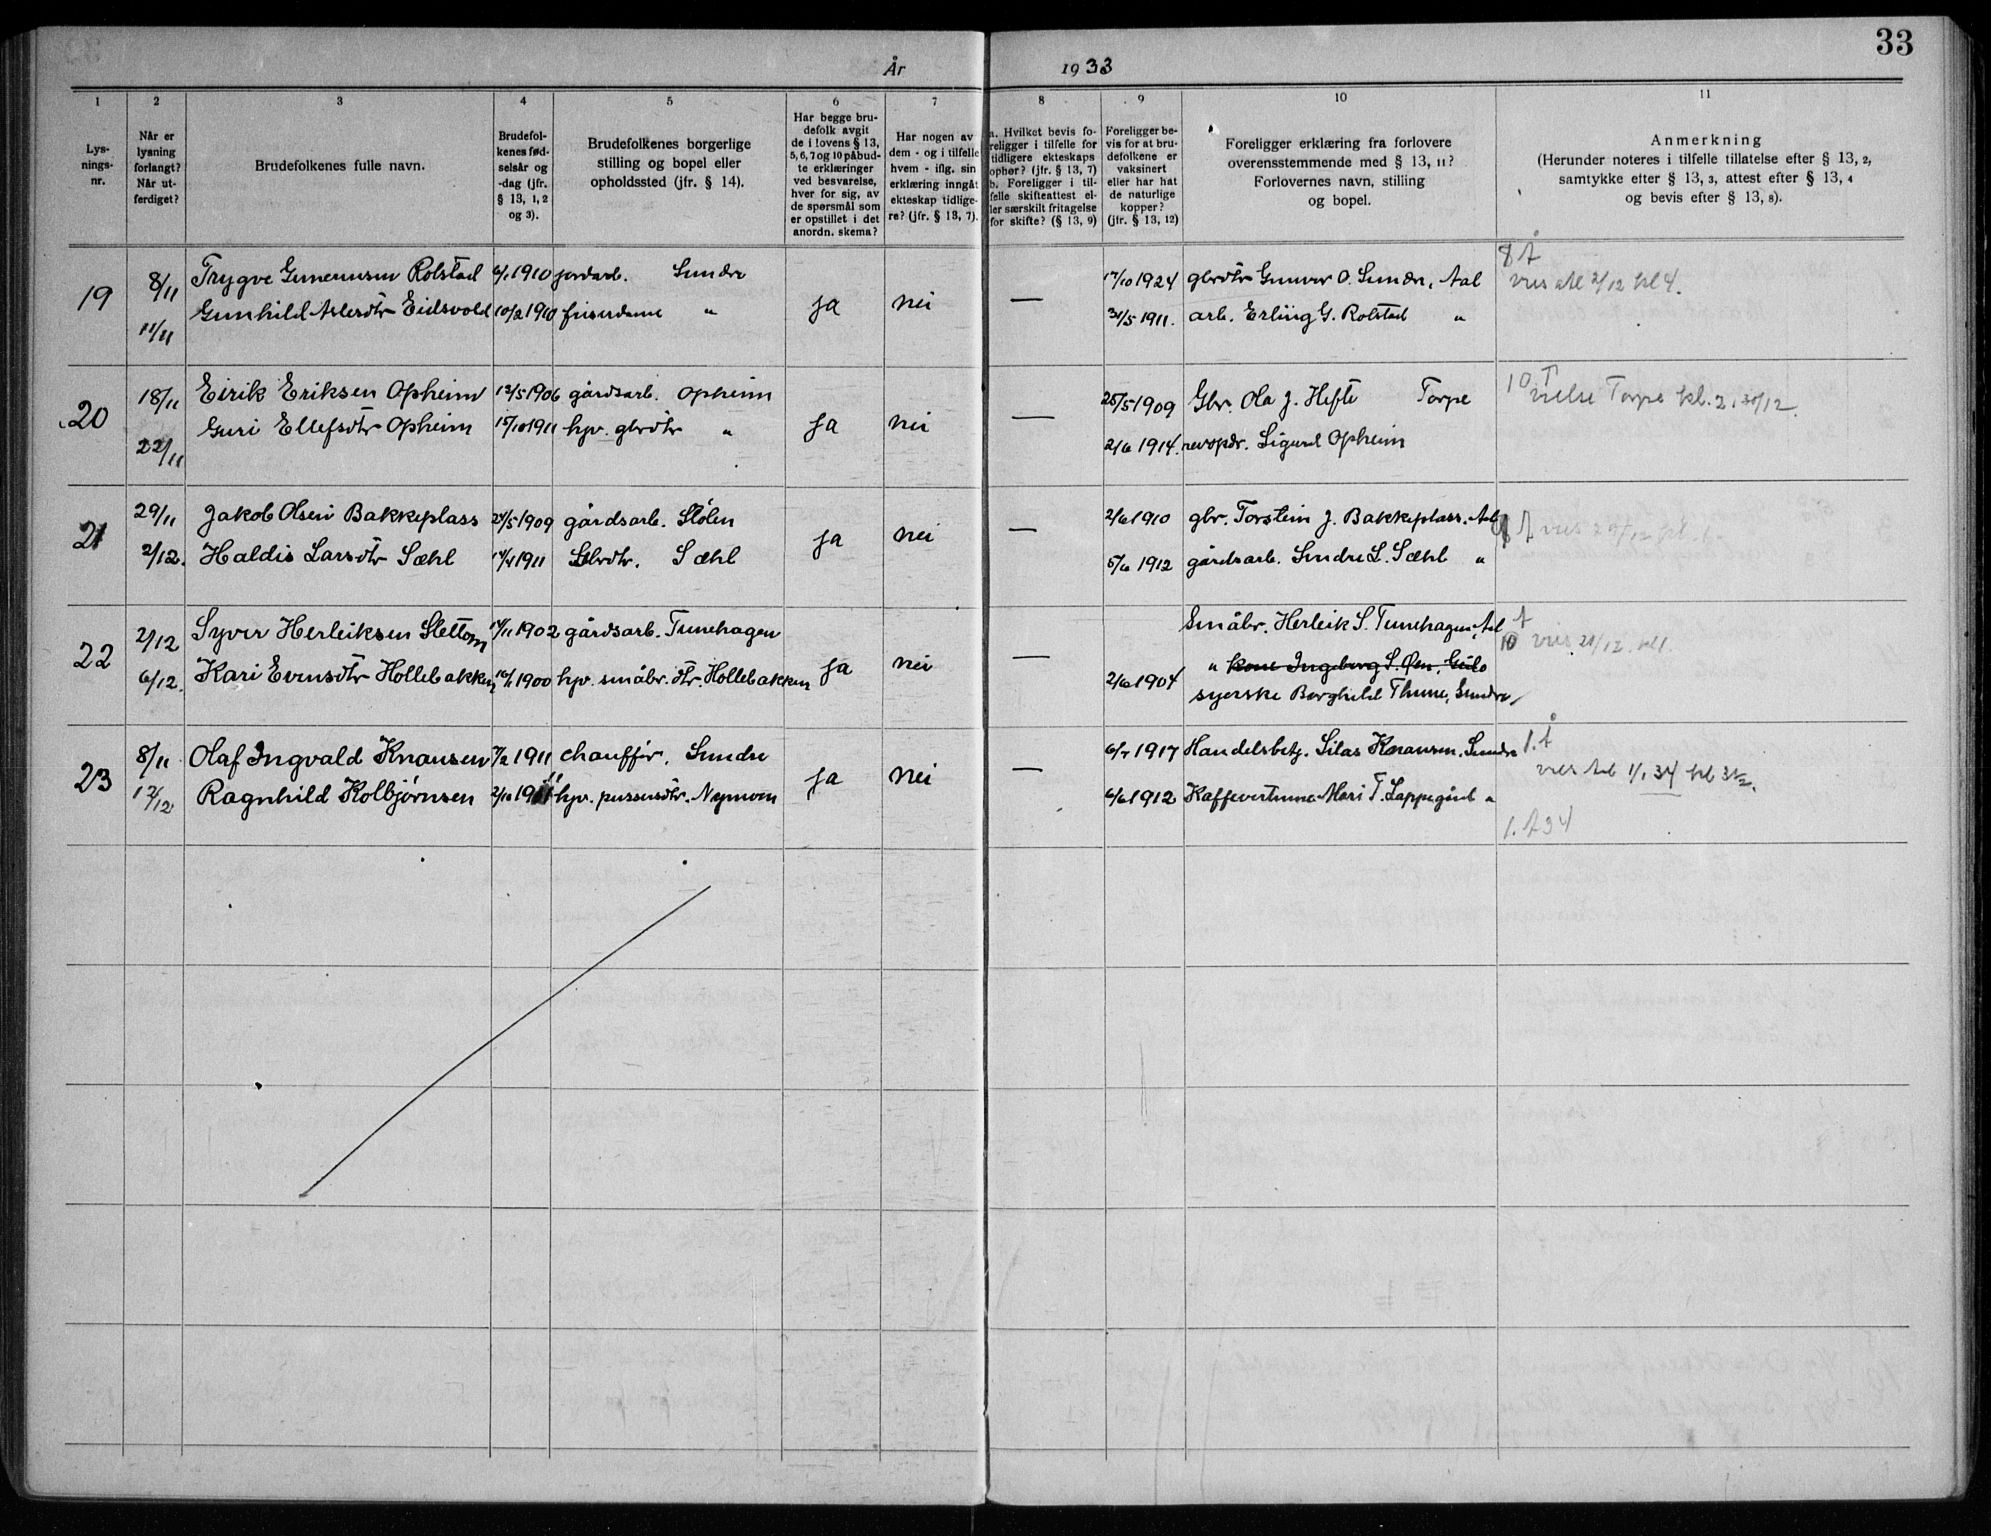 33
År 1933
1 2 3 4 5 6 7 8 9 10 11
Lys-
nings-
nr.
Når er
lysning
forlangt?
Når ut-
ferdiget?
Brudefolkenes fulle navn.
Brudefol-
kenes fød-
selsår og
-dag (jfr.
§ 13, 1, 2
og 3).
Brudefolkenes borgerlige
stilling og bopel eller
opholdssted (jfr. § 14).
Har begge bru-
defolk avgit
de i lovens § 13,
5, 6, 7 og 10 påbud-
te erklæringer
ved besvarelse,
hver for sig, av
de spørsmål som
er opstillet i det
anordn. skema?
Har nogen av
dem - og i tilfelle
hvem - iflg. sin
erklæring inngåt
ekteskap tidlige-
re? (jfr. § 13, 7).
a. Hvilket bevis fo-
religger i tilfelle for
tidligere ekteskaps
ophør? (jfr. § 13, 7)
b. Foreligger i til-
felle skifteattest el-
ler særskilt fritagelse
for skifte? (§ 13, 9)
Foreligger be-
vis for at bru-
defolkene er
vaksinert
eller har hat
de naturlige
kopper?
(jfr. § 13, 12)
Foreligger erklæring fra forlovere
overensstemmende med § 13, 11?
Forlovernes navn, stilling
og bopel.
Anmerkning
(Herunder noteres i tilfelle tillatelse efter § 13, 2,
samtykke efter § 13, 3, attest efter § 13, 4
og bevis efter § 13, 8).
8 Å
19 8/11 Trygve Gunnarsen Rolstad 6/1 1910 jordarb. Sundre ja nei — 17/10 1924 gbrdtr Gunvor O. Sundre, Aal vies Aal 2/12 kl 4.
11/11 Gunhild Aslesdtr Eidsvold 10/2 1910 friserdame " 31/5 1911. arb. Erling G. Rolstad "
20 18/11 Eirik Eriksen Opheim 13/5 1906 gårdsarb. Opheim ja nei — 25/5 1909 Gbr. Ola J. Hefte Torpe 10 T vielse Torpe kl. 2, 30/12.
22/11 Guri Ellefsdtr Opheim 15/10 1911 hjv. gbrdtr " 2/6 1914. Sigurd Opheim
21 29/11 Jakob Olsen Bakkeplass 24/5 1909 gårdsarb. Stølen ja nei — 2/6 1910 gbr. Torstein J. Bakkeplass. Aal Å vies
2/12. Haldis Larsdtr Sæhl 1911 Gbrdtr. Sæhl 5/6 1912 gårdsarb. Sindre L. Sæhl "
22 2/12 Syver Herleiksen Slettom 1902 gårdsarb. Tunehagen ja nei — Småbr. Herleik S. Tunehagen, Aal Å
10 vies
6/12. Kari Evensdtr Hollebakken 1900 hjv. småbr. dtr. Hollebakken " kone Ingeborg S. Øen, Gulo
2/6 1904 syerske Borghild Thune, Sundre
23 8/11 Olaf Ingvald Knausen 1911 chauffør. Sundre ja nei — 1917 Handelsbetj. Silas Knausen. Sundre 1. Å
vies Aal 1/1 34 kl 3½.
12/12 Ragnhild Kolbjørnsen 2/10 1911 hjv. pussersdtr. Nymoen 6/6 1912 Kaffevertinne Mari T. Lappegård "
1. Å 34